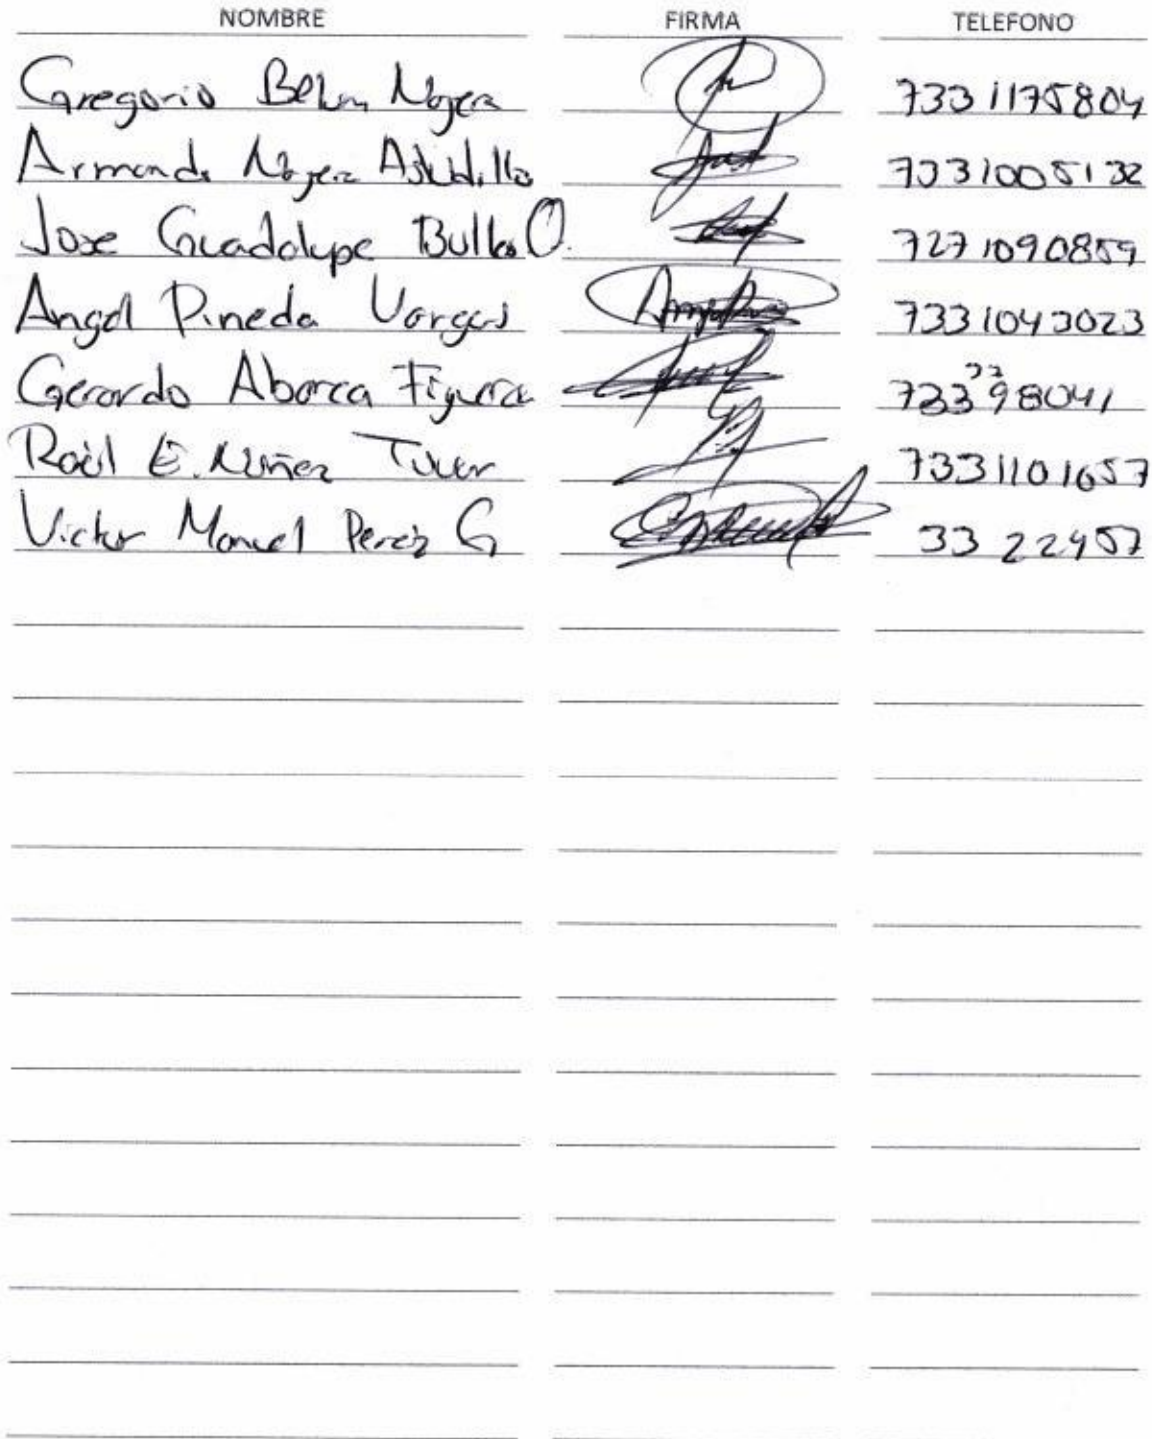 NOMBRE FIRMA TELEFONO
Gregorio Nogera 7331175804
Armando Nogera Astudillo 7331005132
Jose Guadalupe O. 7271090859
Angel Pineda Vargas 7331043023
Gerardo Abarca Figueroa
Raúl E. Nuñez 7331101657
Victor Manuel Perez G 33 22457